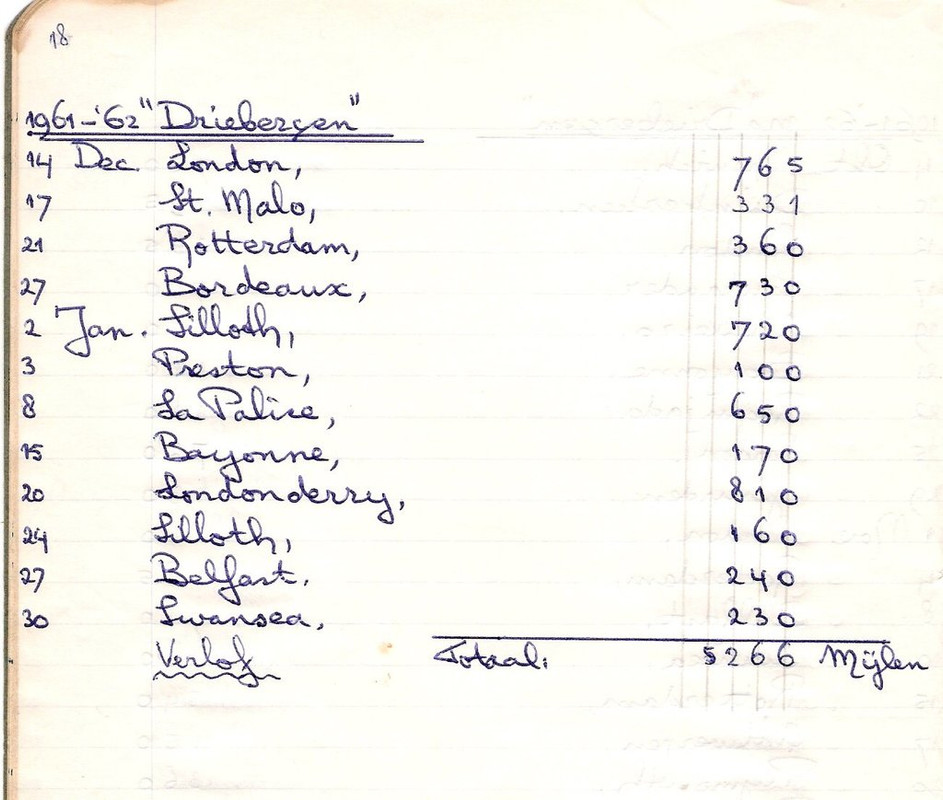 18
1961-'62 "Driebergen"
14 Dec. London, 765
17 St. Malo, 331
21 Rotterdam, 360
27 Bordeaux, 730
2 Jan. Silloth, 720
3 Preston, 100
8 La Palice, 650
15 Bayonne, 170
20 Londonderry, 810
24 Silloth, 160
27 Belfast. 240
30 Swansea, 230
Verlof Totaal: 5266 Mijlen